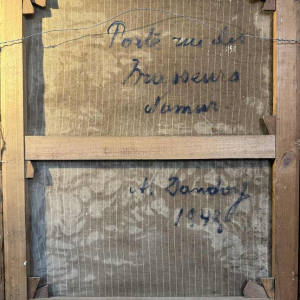 Porte rue des
Brasseurs
Namur.
A. Dandoy
1943